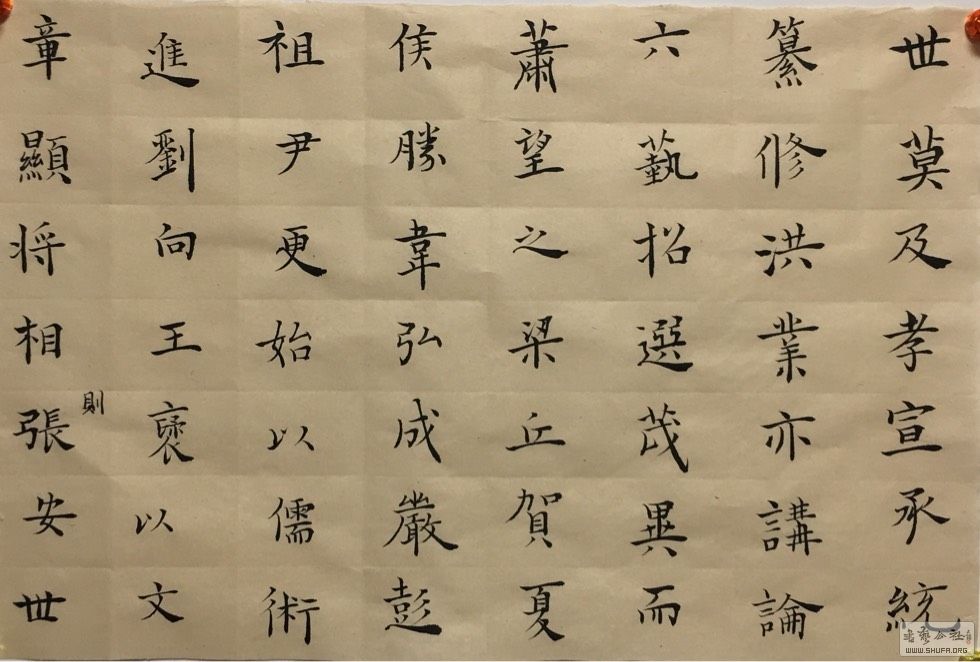 世莫及孝宣承統
纂修洪業亦講論
六藝招選茂異而
蕭望之梁丘賀夏
侯勝韋弘成嚴彭
祖尹更始以儒術
進劉向王褒以文
章顯將相張安世
則
書藝公社
WWW.SHUFA.ORG